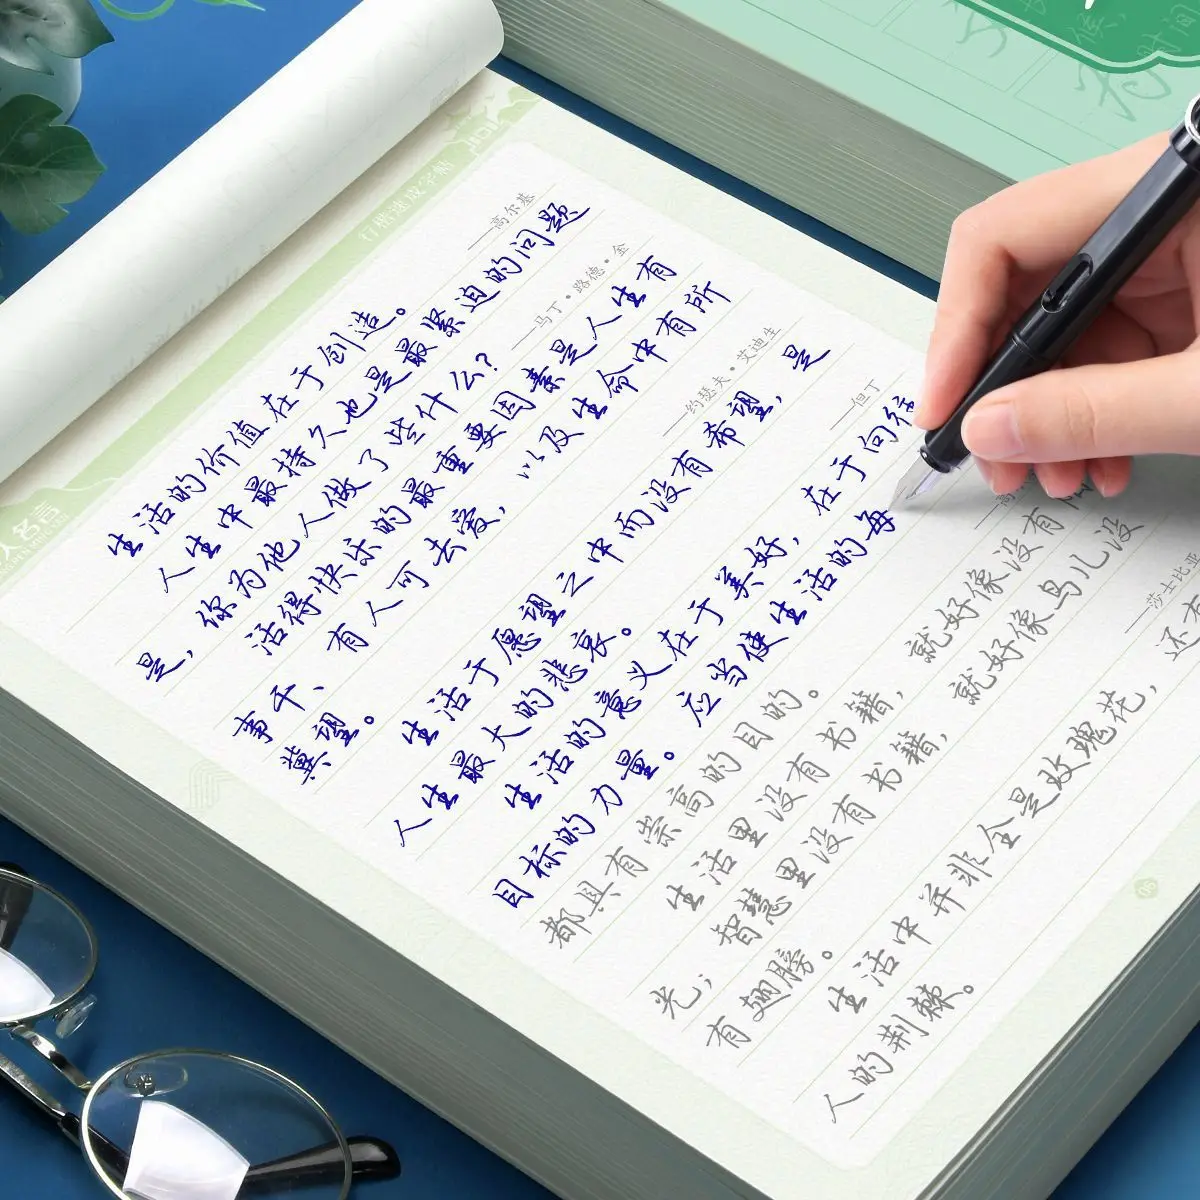 行楷速成字帖
人名言
生活的价值在于创造。
——高尔基
人生中最持久也是最紧迫的问题
是，你为他人做了些什么？
——马丁·路德·金
活得快乐的最重要因素是人生有
事干、有人可去爱，以及生命中有所
冀望。
——约瑟夫·艾迪生
生活于愿望之中而没有希望，是
人生最大的悲哀。
——但丁
生活的意义在于美好，在于向往
目标的力量。应当使生活的每
都具有崇高的目的。
——高
生活里没有书籍，就好像没有阳
光；智慧里没有书籍，就好像鸟儿没
有翅膀。
——莎士比亚
生活中并非全是玫瑰花，还
人的荆棘。
05
时间